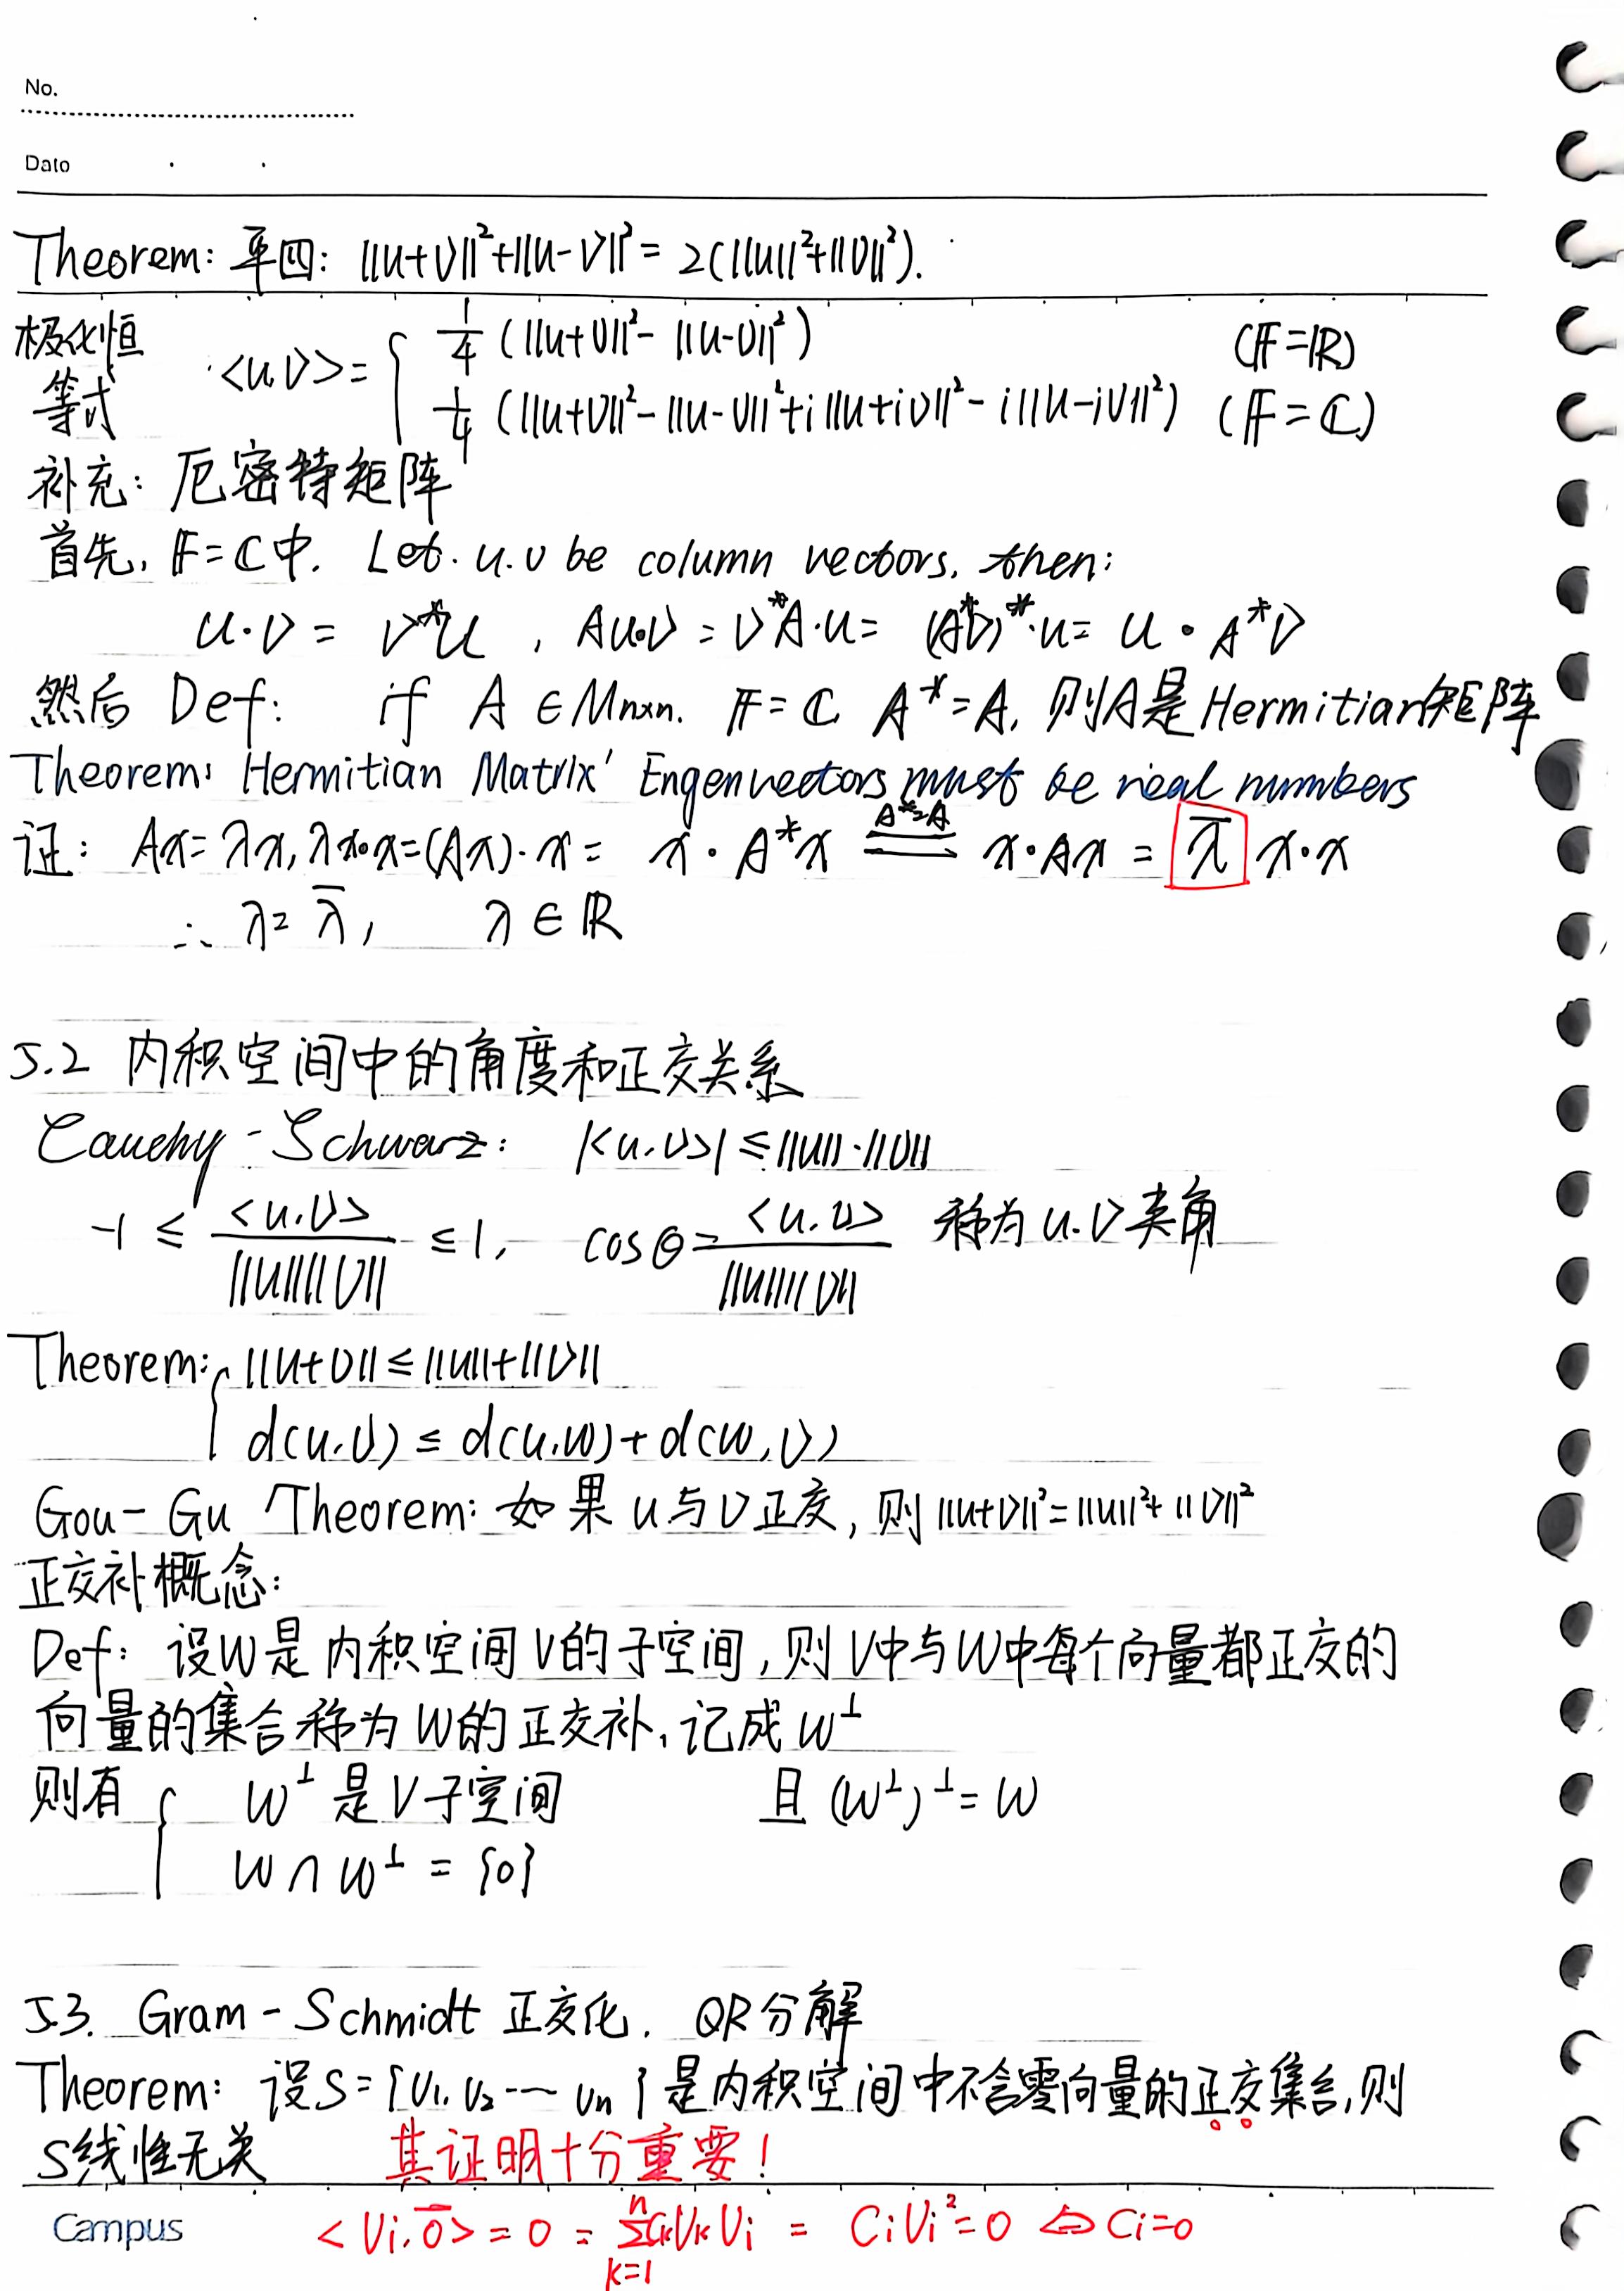 No.
Date
Theorem: 平四: ||u+v||²+||u-v||²= 2(||u||²+||v||²).
极化恒等式 <u,v>= { 1/4 (||u+v||²- ||u-v||²) (F=R)
1/4 (||u+v||²- ||u-v||²+i||u+iv||²- i||u-iv||²) (F=C)
补充: 厄密特矩阵
首先, F=C中. Let. u.v be column vectors, then:
u·v = v*u , Au·v = v*A·u= (A*v)*·u= u·A*v
然后 Def: if A ∈Mn×n. F=C A*=A, 则A是Hermitian矩阵
Theorem: Hermitian Matrix' Engenvectors must be real numbers
证: Ax=λx, λx·x=(Ax)·x= x·A*x =(A*=A)= x·Ax = λ̅ x·x
∴ λ= λ̅, λ∈R
5.2 内积空间中的角度和正交关系
Cauchy-Schwarz: |<u,v>| ≤||u||·||v||
-1 ≤ <u,v>/||u||||v|| ≤1, cosθ= <u,v>/||u||||v|| 称为u.v夹角
Theorem: { ||u+v||≤||u||+||v||
d(u,v) ≤ d(u,w)+d(w,v)
Gou-Gu Theorem: 如果u与v正交, 则||u+v||²=||u||²+||v||²
正交补概念:
Def: 设W是内积空间V的子空间, 则V中与W中每个向量都正交的
向量的集合称为W的正交补, 记成W⊥
则有 { W⊥是V子空间 且(W⊥)⊥=W
W∩W⊥={0}
5.3. Gram-Schmidt 正交化. QR分解
Theorem: 设S={v1, v2 ··· vn}是内积空间中不含零向量的正交集合,则
S线性无关 其证明十分重要!
Campus <vi,0̅>=0 = Σ(k=1→n) ckvkvi = civi²=0 ⇔ ci=0